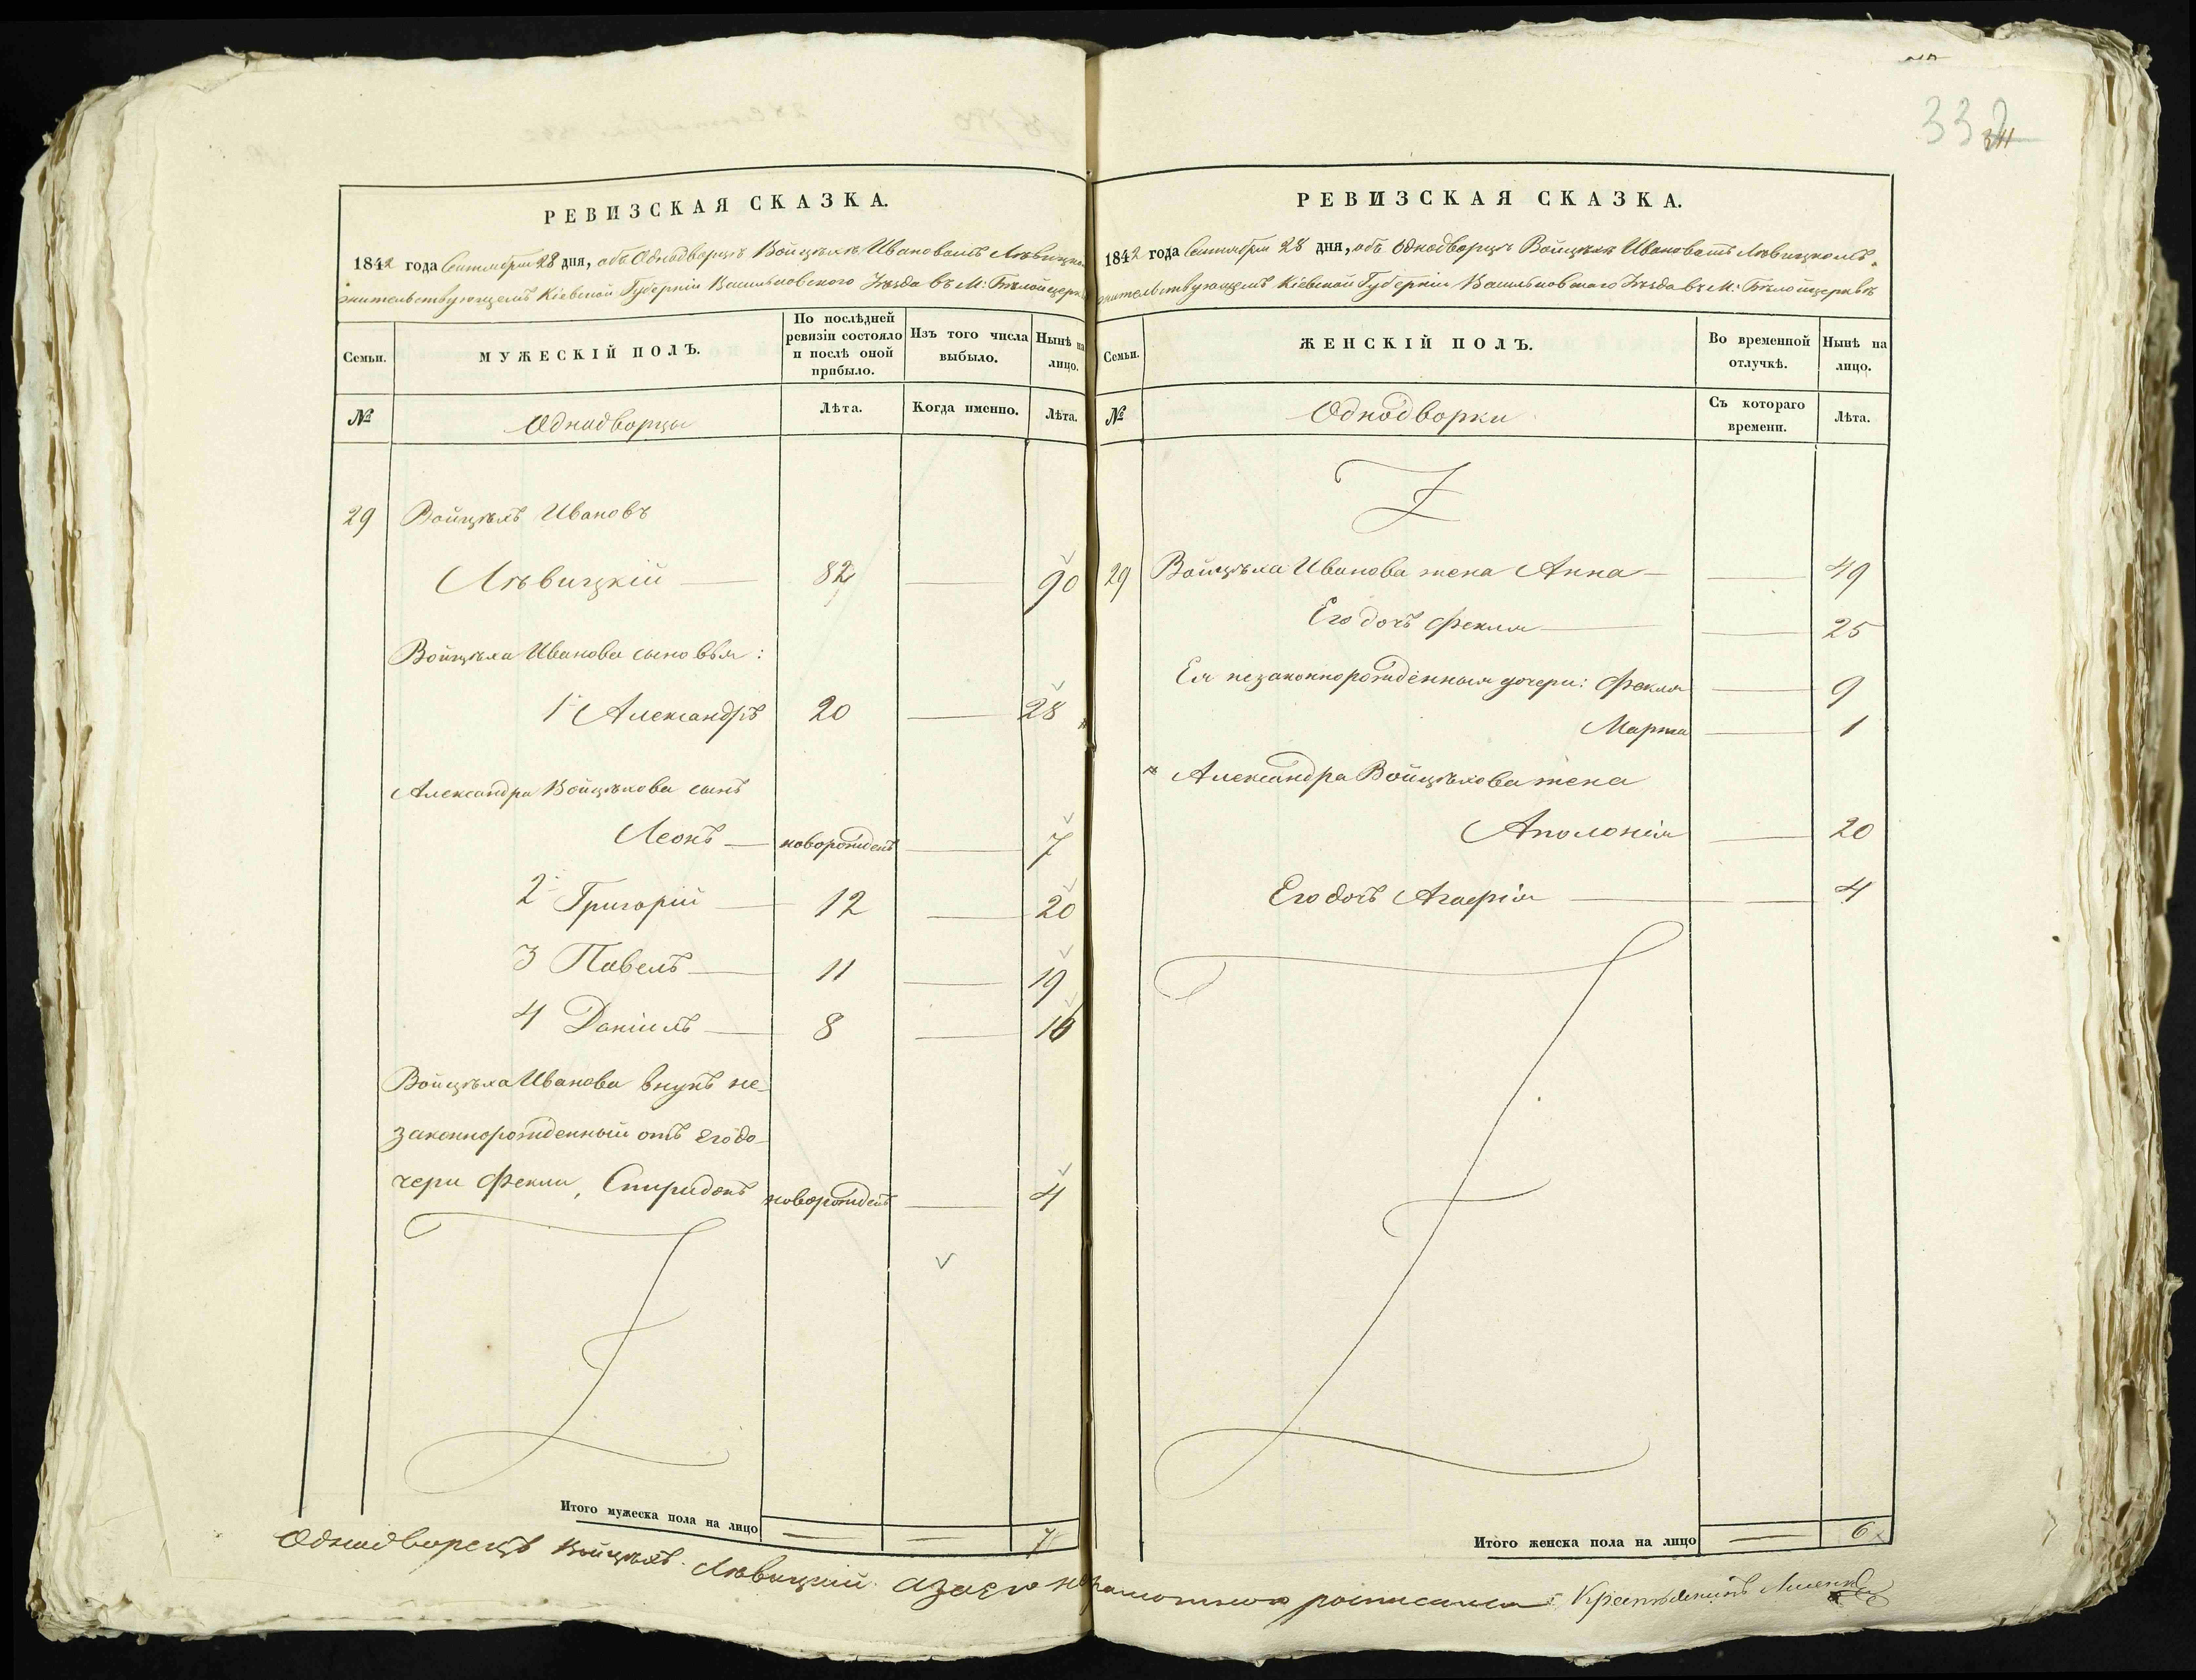 332
РЕВИЗСКАЯ СКАЗКА.
1842 года Сентября 28 дня, объ Однодворцѣ Войцѣхѣ Ивановѣ Лѣвицко
жительствующемъ Кіевской Губерніи Васильковского Уѣзда въ М: Бѣлойцерк
Семьи.
МУЖЕСКІЙ ПОЛЪ.
По послѣдней ревизіи состояло и послѣ оной прибыло.
Изъ того числа выбыло.
Нынѣ на лицо.
№
Однодворцы
Лѣта.
Когда именно.
Лѣта.
29 Войцѣхъ Ивановъ
Лѣвицкій — 82 — 90
Войцѣха Иванова сыновья:
1й Александръ 20 — 28
Александра Войцѣхова сынъ
Леонъ — новорожденъ — 7
2й Григорій — 12 — 20
3 Павелъ — 11 — 19
4 Даніилъ — 8 — 16
Войцѣха Иванова внукъ не-
законнорожденный отъ его до-
чери Феклы, Спиридонъ новорожденъ — 4
Итого мужеска пола на лицо — — 7
РЕВИЗСКАЯ СКАЗКА.
1842 года Сентября 28 дня, объ Однодворцѣ Войцѣхѣ Ивановѣ Лѣвицкомъ,
жительствующемъ Кіевской Губерніи Васильковского Уѣзда въ М: Бѣлойцерквѣ
Семьи.
ЖЕНСКІЙ ПОЛЪ.
Во временной отлучкѣ.
Нынѣ на лицо.
№
Однодворки
Съ котораго времени.
Лѣта.
29 Войцѣха Иванова жена Анна — — 49
Его дочь Фекла — — 25
Ея незаконнорожденныя дочери: Фекла — 9
Марта — 1
Александра Войцѣхова жена
Аполонія — 20
Его дочь Агафія — — 4
Итого женска пола на лицо — 6
Однодворецъ Войцѣхъ Лѣвицкій. а за его неграмотного росписался